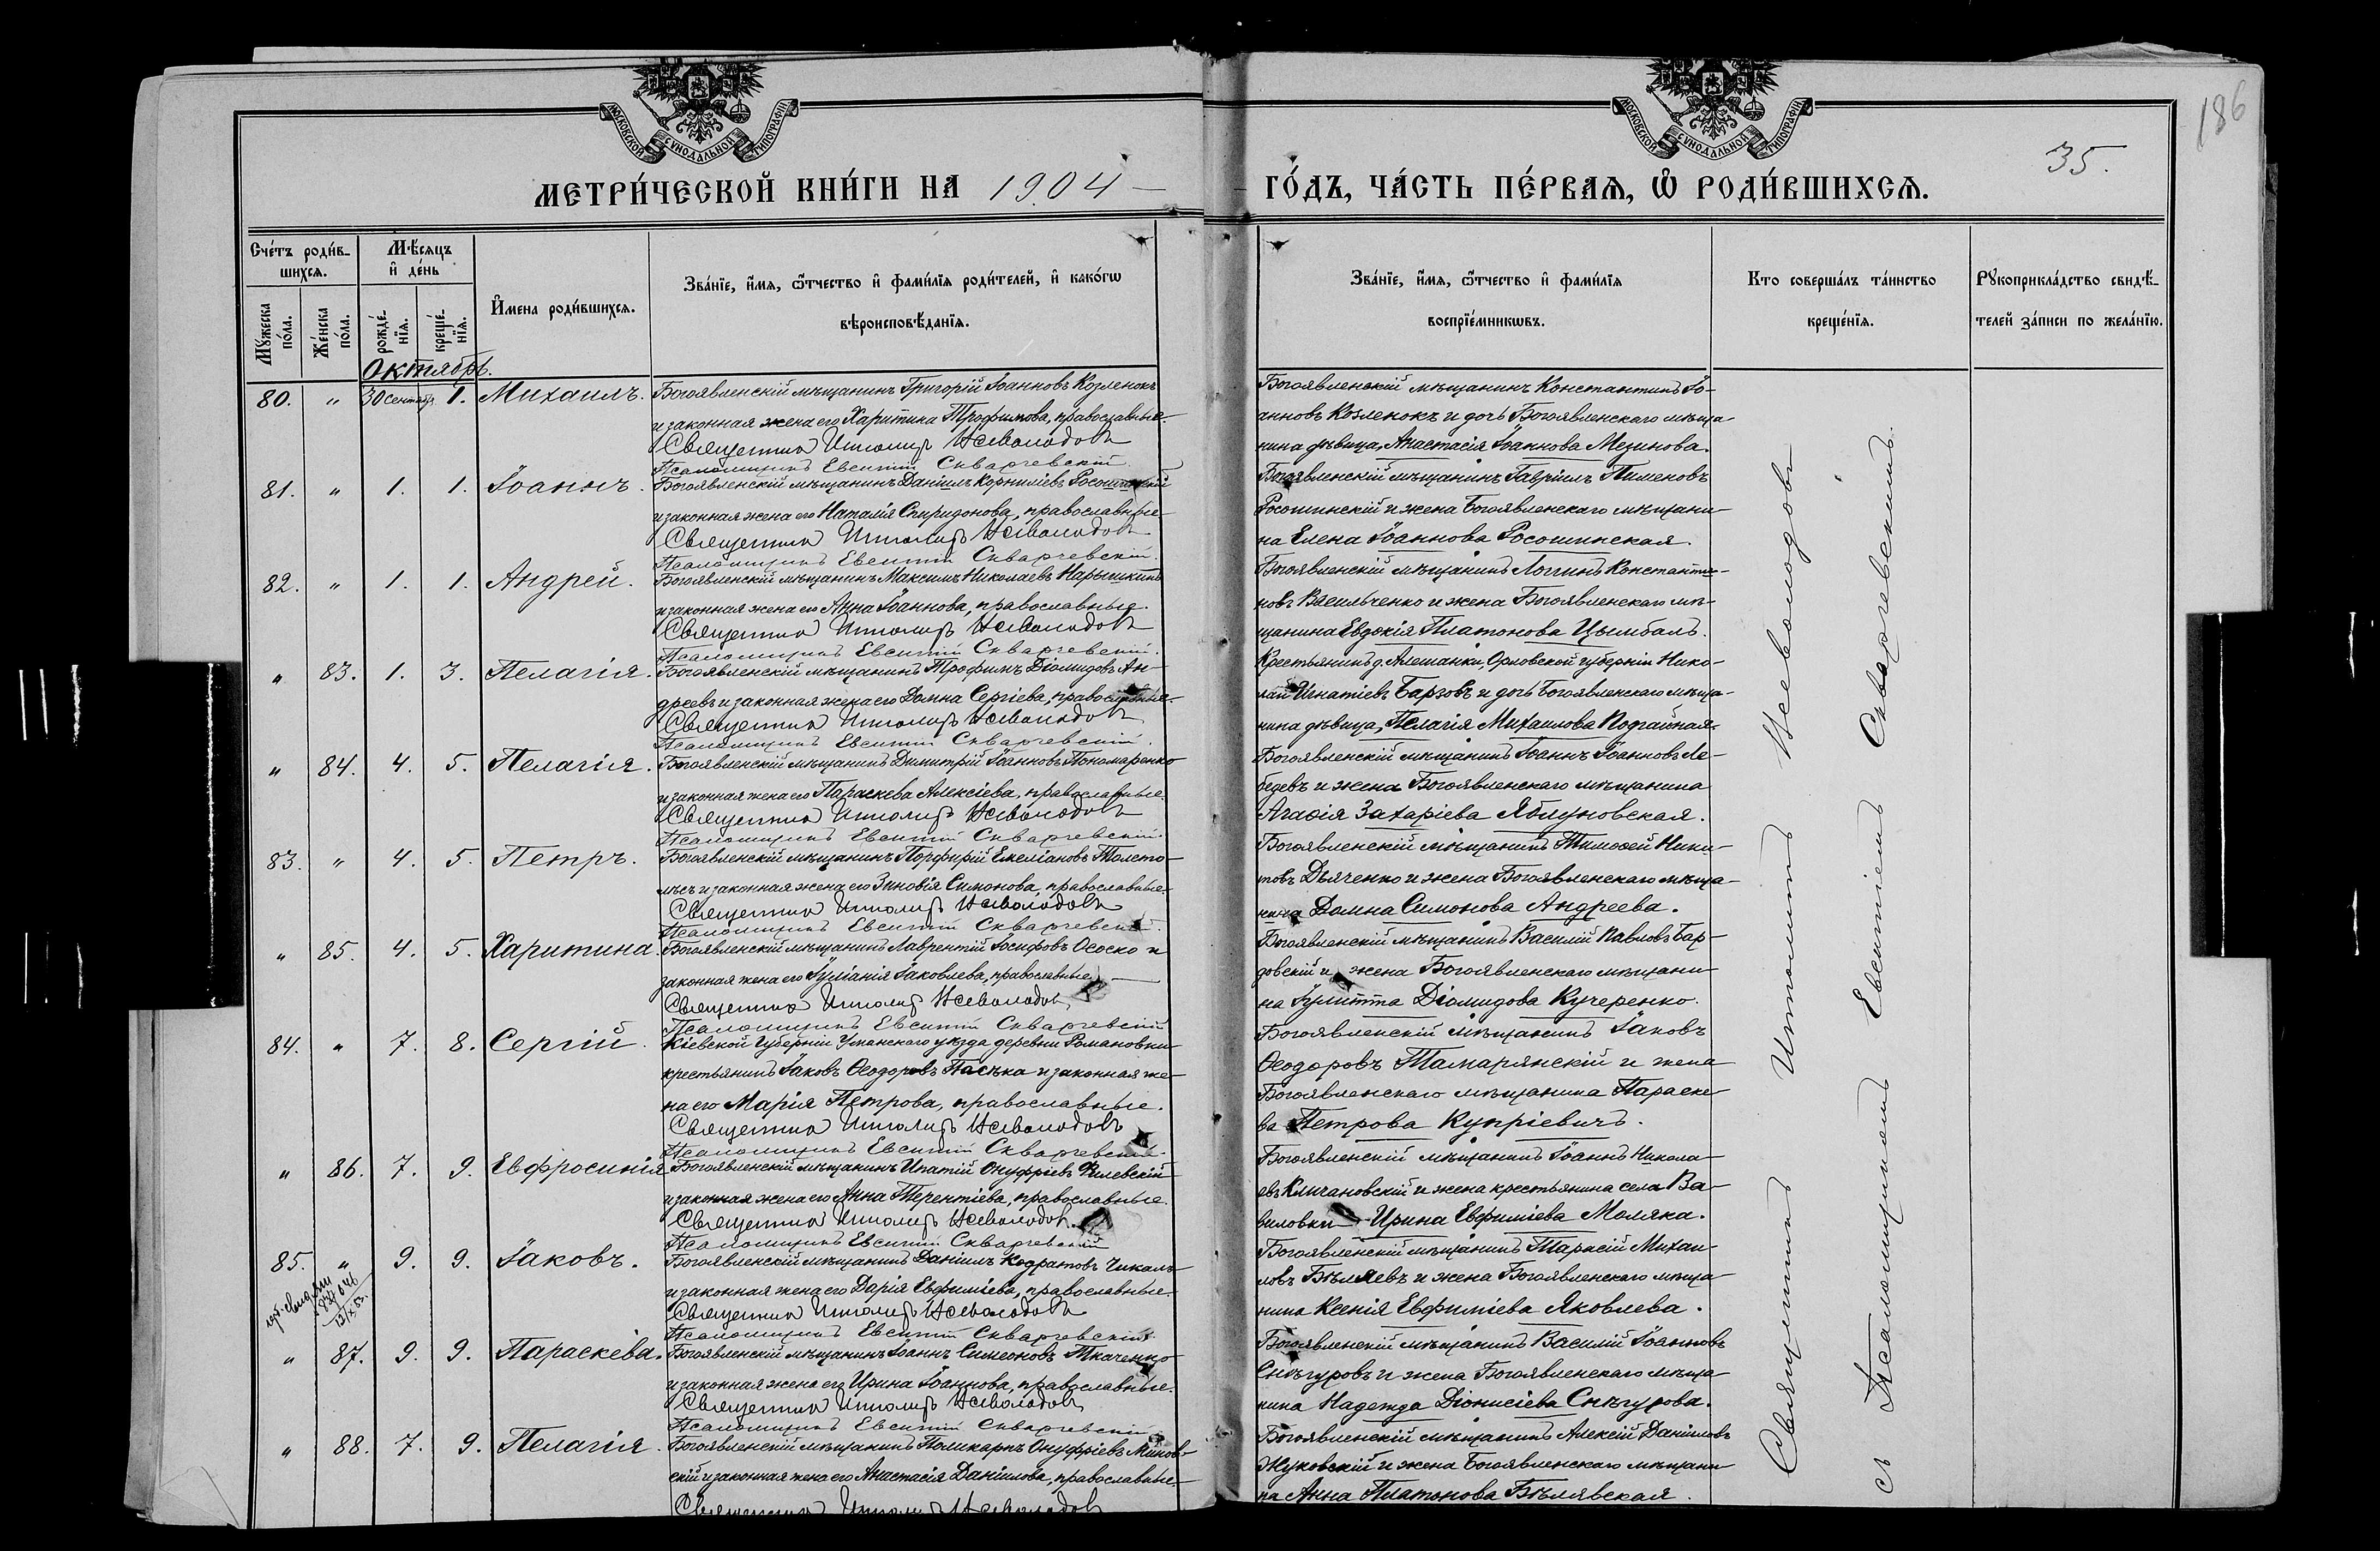 МОСКОВСКОЙ СѴНОДАЛЬНОЙ ТИПОГРАФІИ
МЕТРИ́ЧЕСКОЙ КНИ́ГИ НА 1904
Сче́тъ роди́в-
шихся.
Мѣ́сяцъ
и де́нь
Имена роди́вшихся.
Зва́нїе, и́мя, ѻ҆́тчество и фами́лїя роди́телей, и како́гѡ
вѣроисповѣ́данїя.
Мꙋжеска по́ла.
Же́нска по́ла.
рожде́-
нїя.
креще́-
нїя.
Октябрь.
80. " 30 сентября 1. Михаилъ. Богоявленскій мѣщанинъ Григорій Іоанновъ Козленокъ
и законная жена его Харитина Трофимова, православные.
Священникъ Ипполитъ Всеволодовъ
Псаломщикъ Евсигній Скварчевскій.
81. " 1. 1. Іоаннъ. Богоявленскій мѣщанинъ Даніилъ Корниліевъ Росошинскій
и законная жена его Наталія Спиридонова, православные
Священникъ Ипполитъ Всеволодовъ
Псаломщикъ Евсигній Скварчевскій.
82. " 1. 1. Андрей. Богоявленскій мѣщанинъ Максимъ Николаевъ Нарышкинъ
и законная жена его Анна Іоаннова, православные.
Священникъ Ипполитъ Всеволодовъ
Псаломщикъ Евсигній Скварчевскій.
" 83. 1. 3. Пелагія. Богоявленскій мѣщанинъ Трофимъ Діомидовъ Ан-
дреевъ и законная жена его Домна Сергіева, православные.
Священникъ Ипполитъ Всеволодовъ
Псаломщикъ Евсигній Скварчевскій.
" 84. 4. 5. Пелагія. Богоявленскій мѣщанинъ Димитрій Іоанновъ Пономаренко
и законная жена его Параскева Алексіева, православные.
Священникъ Ипполитъ Всеволодовъ
Псаломщикъ Евсигній Скварчевскій.
83. " 4. 5. Петръ. Богоявленскій мѣщанинъ Порфирій Емеліановъ Толсто-
лѣсъ и законная жена его Зиновія Симонова, православные.
Священникъ Ипполитъ Всеволодовъ
Псаломщикъ Евсигній Скварчевскій.
" 85. 4. 5. Харитина. Богоявленскій мѣщанинъ Лаврентій Іосифовъ Ососко и
законная жена его Іуліанія Іаковлева, православные.
Священникъ Ипполитъ Всеволодовъ
Псаломщикъ Евсигній Скварчевскій
84. " 7. 8. Сергій. Кіевской Губерніи Уманскаго уѣзда деревни Романовки
крестьянинъ Іаковъ Ѳеодоровъ Пасѣка и законная же-
на его Марія Петрова, православные.
Священникъ Ипполитъ Всеволодовъ
Псаломщикъ Евсигній Скварчевскій.
" 86. 7. 9. Евфросинія. Богоявленскій мѣщанинъ Ипатій Онуфріевъ Вилевскій
и законная жена его Анна Терентіева, православные.
Священникъ Ипполитъ Всеволодовъ
Псаломщикъ Евсигній Скварчевскій
85. " 9. 9. Іаковъ. Богоявленскій мѣщанинъ Даніилъ Кодратовъ Чикалъ
и законная жена его Дарія Евфиміева, православные.
Священникъ Ипполитъ Всеволодовъ
Псаломщикъ Евсигній Скварчевскій.
" 87. 9. 9. Параскева. Богоявленскій мѣщанинъ Іоаннъ Симеоновъ Ткаченко
и законная жена его Ирина Іоаннова, православные.
Священникъ Ипполитъ Всеволодовъ
Псаломщикъ Евсигній Скварчевскій
" 88. 7. 9. Пелагія. Богоявленскій мѣщанинъ Поликарпъ Онуфріевъ
скій и законная жена его Анастасія Даніилова, православные.
Священникъ Ипполитъ Всеволодовъ
186
35.
МОСКОВСКОЙ СѴНОДАЛЬНОЙ ТИПОГРАФІИ
ГО́ДЪ, ЧА́СТЬ ПЕ́РВАЯ, Ѽ РОДИ́ВШИХСЯ.
Зва́нїе, и́мя, ѻ҆́тчество и фами́лїя
воспрїе́мникѡвъ.
Кто соверша́лъ та́инство
креще́нїя.
Рꙋкоприкла́дство свидѣ́-
телей за́писи по жела́нїю.
Богоявленскій мѣщанинъ Константинъ Іо-
анновъ Козленокъ и дочь Богоявленскаго мѣща-
нина дѣвица, Анастасія Іоаннова Мезинова.
Богоявленскій мѣщанинъ Гавріилъ Пименовъ
Росошинскій и жена Богоявленскаго мѣщани-
на Елена Іоаннова Росошинская.
Богоявленскій мѣщанинъ Логгинъ Константи-
новъ Васильченко и жена Богоявленскаго мѣ-
щанина Евдокія Платонова Цымбалъ.
Крестьянинъ д. Алешанки, Орловской губерніи Нико-
лай Игнатіевъ Барзовъ и дочь Богоявленскаго мѣща-
нина дѣвица, Пелагія Михаилова Подгайная.
Богоявленскій мѣщанинъ Іоаннъ Іоанновъ Ле-
бедевъ и жена Богоявленскаго мѣщанина
Агаѳія Захаріева Яблуновская.
Богоявленскій мѣщанинъ Тимоѳей Ники-
товъ Дьяченко и жена Богоявленскаго мѣща-
нина Домна Симонова Андреева.
Богоявленскій мѣщанинъ Василій Павловъ Бар-
довскій и жена Богоявленскаго мѣщани-
на Іулитта Діомидова Кучеренко.
Богоявленскій мѣщанинъ Іаковъ
Ѳеодоровъ Тамарянскій и жена
Богоявленскаго мѣщанина Параске-
ва Петрова Купріевичъ.
Богоявленскій мѣщанинъ Іоаннъ Никола-
евъ Кличановскій и жена крестьянина села Ва-
виловки Ирина Евфиміева Моляка.
Богоявленскій мѣщанинъ Тарасій Михаи-
ловъ Бѣляевъ и жена Богоявленскаго мѣща-
нина Ксенія Евфиміева Яковлева.
Богоявленскій мѣщанинъ Василій Іоанновъ
Снѣгуровъ и жена Богоявленскаго мѣща-
нина Надежда Діонисіева Снѣгурова.
Богоявленскій мѣщанинъ Алексій Данииловъ
Жуковскій и жена Богоявленскаго мѣщани-
на Анна Платонова Бѣлявская.
Священникъ Ипполитъ Всеволодовъ
съ Псаломщикомъ Евсигніемъ Скварчевскимъ.